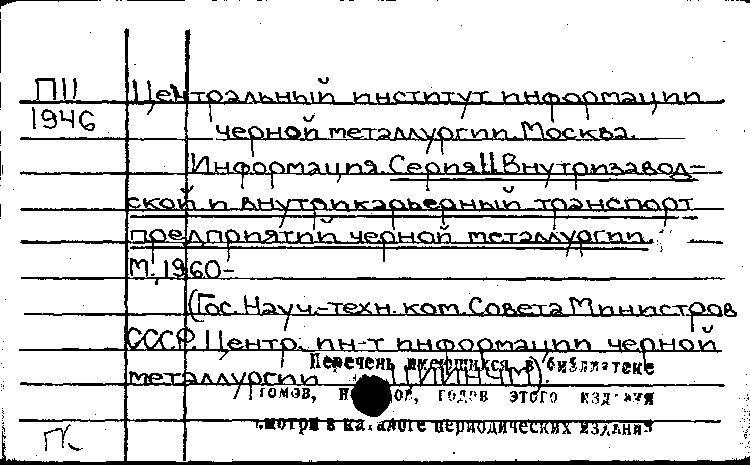 ПII
1946
Центральный институт информации
черной металлургии. Москва.
Информация. Серия 11. Внутризавод-
ской и внутрикарьерный транспорт
предприятий черной металлургии.
М., 1960-
(Гос. Науч.-техн. ком. Совета Министров
СССР. Центр. ин-т информации черной
металлургии (ЦИИНЧМ).
Перечень имеющихся в библиотеке
томов, годов этого издания
смотри в каталоге периодических изданий
ГК